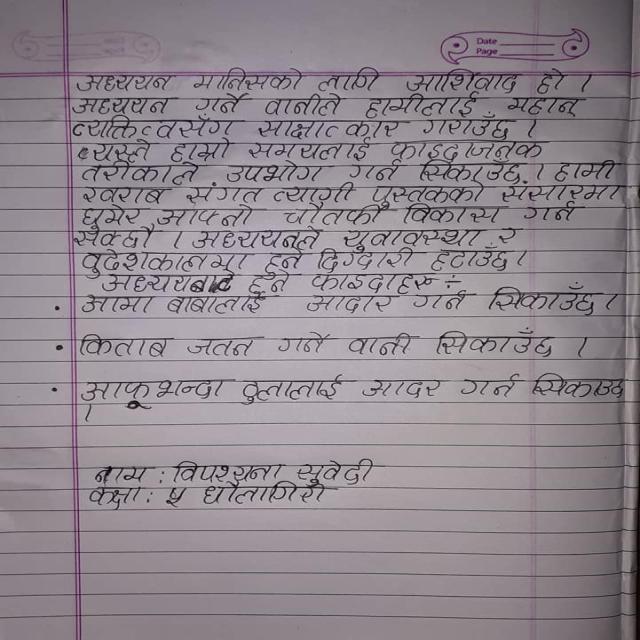 Date
Page
अध्ययन मानिसको लागि आर्शिवाद हो ।
अध्ययन गर्ने वानीले हामीलाई महान्
व्यक्तित्वसँग साक्षात्कार गराउँछ ।
त्यस्ले हाम्रो समयलाई फाइदाजनक
तरीकाले उपभोग गर्न सिकाउँछ । हामी
खराब संगत त्यागी पुस्तकको संसारमा
घुमेर आफ्नो चौतर्फी विकास गर्न
सक्छौ । अध्ययनले युवावस्था र
वुढेशकालमा हुने दिग्दारी हटाउँछ।
अध्ययनबाट हुने फाइदाहरू :-
• आमा बाबालाई आदार गर्न सिकाउँछ ।
• किताब जतन गर्ने वानी सिकाउँछ ।
• आफूभन्दा ठुलालाई आदर गर्न सिकाउछ
।
नाम : विपश्यना सुवेदी
कक्षा : ५ धौलागिरी